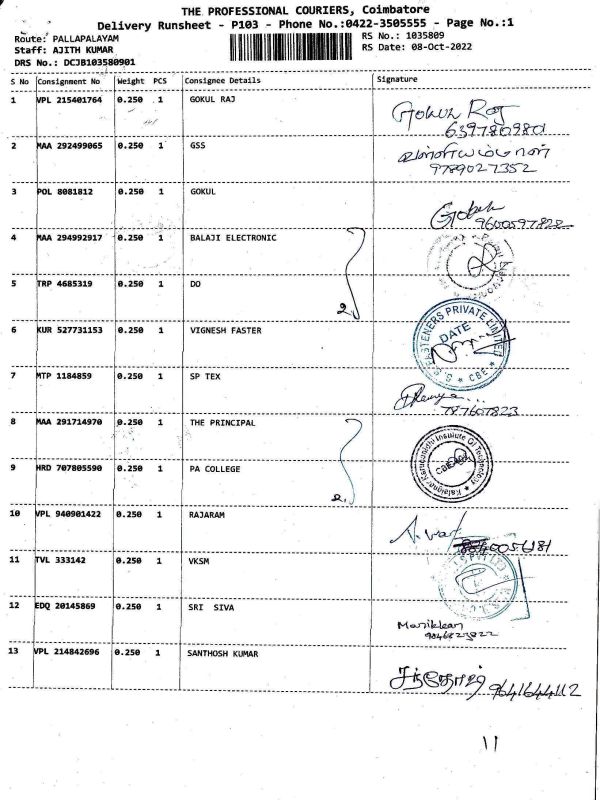 THE PROFESSIONAL COURIERS, Coimbatore
Delivery Runsheet - P103 - Phone No.:0422-3505555 - Page No.:1
Route: PALLAPALAYAM
RS No.: 1035809
Staff: AJITH KUMAR
RS Date: 08-Oct-2022
DRS No.: DCJB103580901
S No Consignment No Weight PCS Consignee Details Signature
1 VPL 215401764 0.250 1 GOKUL RAJ Gokul Raj
6397809801
2 MAA 292499065 0.250 1 GSS
9789027352
3 POL 8081812 0.250 1 GOKUL Gokul
9600597822
4 MAA 294992917 0.250 1 BALAJI ELECTRONIC
5 TRP 4685319 0.250 1 DO
2
6 KUR 527731153 0.250 1 VIGNESH FASTER
S.G. FASTENERS PRIVATE LIMITED
DATE
CBE
7 MTP 1184859 0.250 1 SP TEX
787607823
8 MAA 291714970 0.250 1 THE PRINCIPAL
Kalaignar Karunanidhi Institute Of Technology
9 HRD 707805590 0.250 1 PA COLLEGE
2
10 VPL 940901422 0.250 1 RAJARAM
11 TVL 333142 0.250 1 VKSM
12 EDQ 20145869 0.250 1 SRI SIVA
Manikkam
13 VPL 214842696 0.250 1 SANTHOSH KUMAR
சந்தோஷ் 9641644112
11